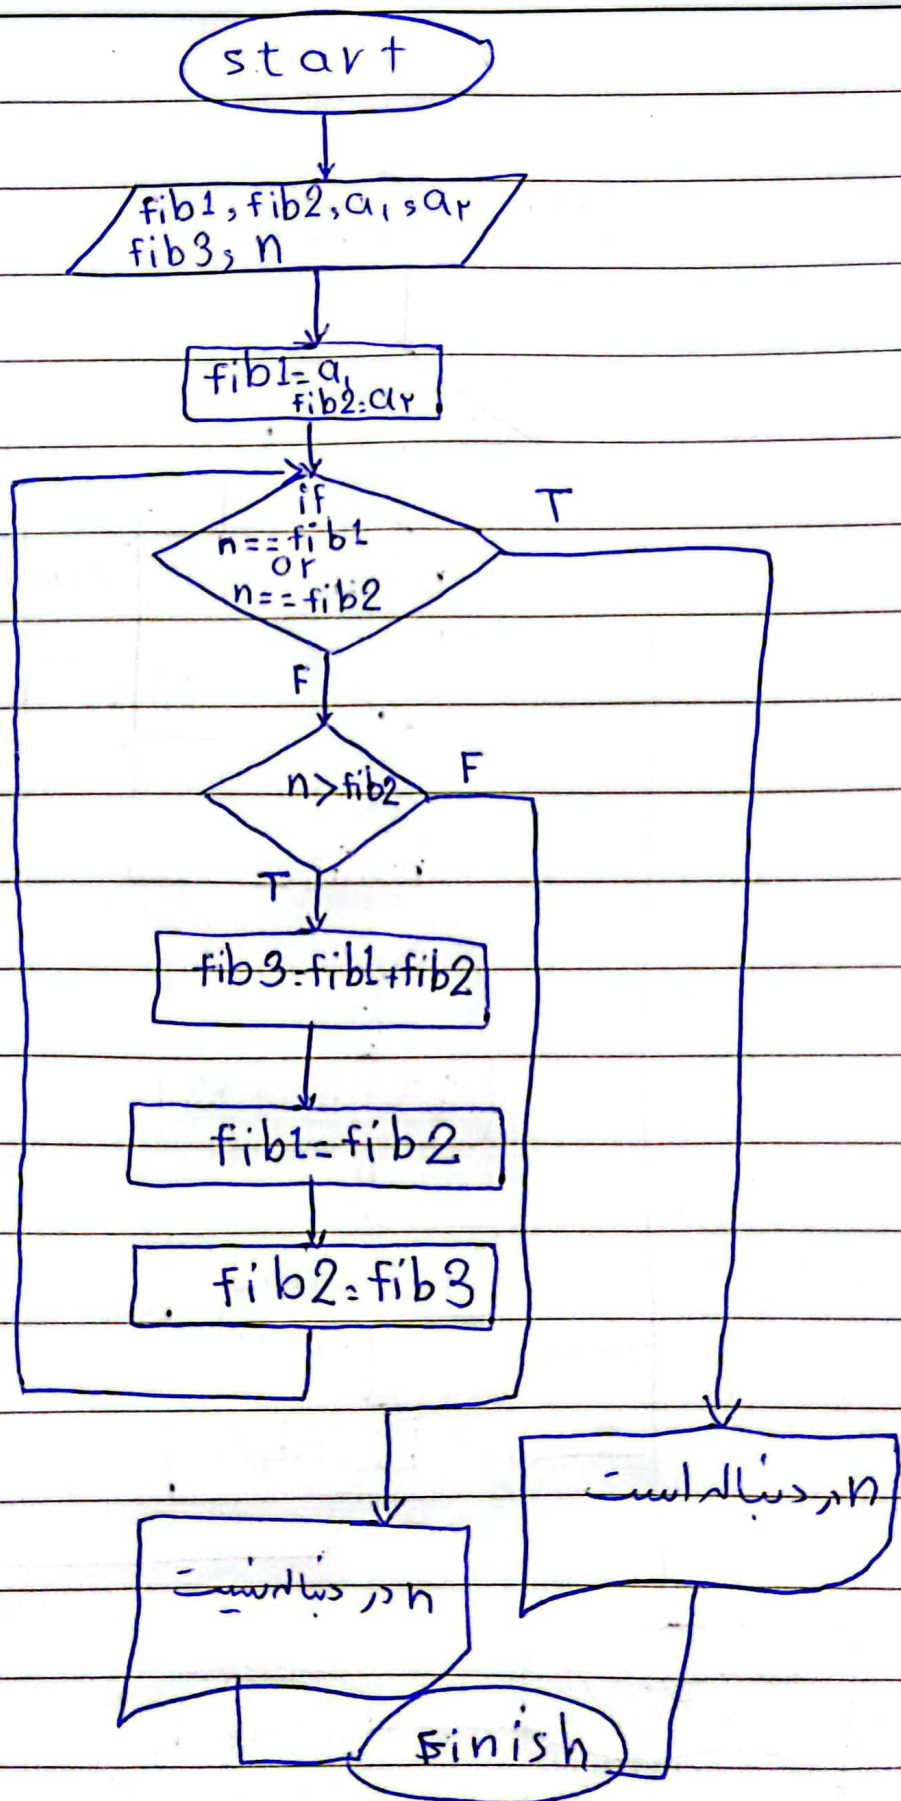 start
fib1, fib2, a۱, a۲
fib3, n
fib1=a۱
fib2=a۲
if
n==fib1
or
n==fib2
T
F
n>fib2
F
T
fib3=fib1+fib2
fib1=fib2
fib2=fib3
n در دنباله است
n در دنباله نیست
Finish